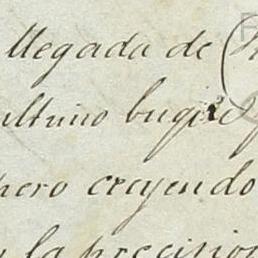 llegada de
ultimo
pero creyendo
la precision